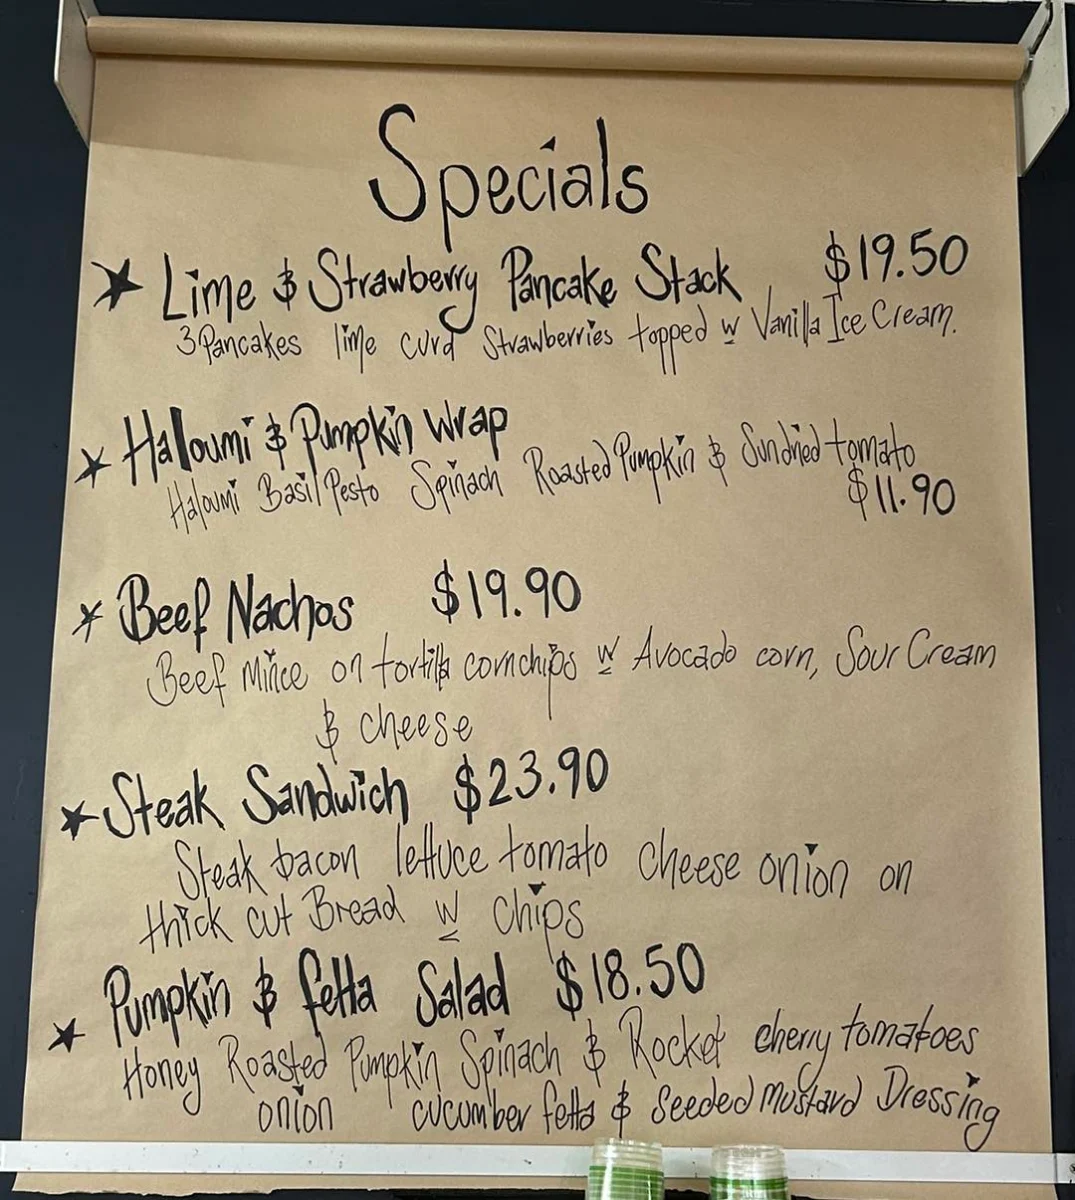 Specials
Lime & Strawberry Pancake Stack $19.50
3 Pancakes lime curd Strawberries topped w Vanilla Ice Cream.
Haloumi & Pumpkin Wrap
Haloumi Basil Pesto Spinach Roasted Pumpkin & Sundried tomato
$11.90
Beef Nachos $19.90
Beef Mince on tortilla cornchips w Avocado corn, Sour Cream
& cheese
Steak Sandwich $23.90
Steak bacon lettuce tomato cheese onion on
thick cut Bread w chips
Pumpkin & fetta Salad $18.50
Honey Roasted Pumpkin Spinach & Rocket cherry tomatoes
onion cucumber fetta & Seeded Mustard Dressing